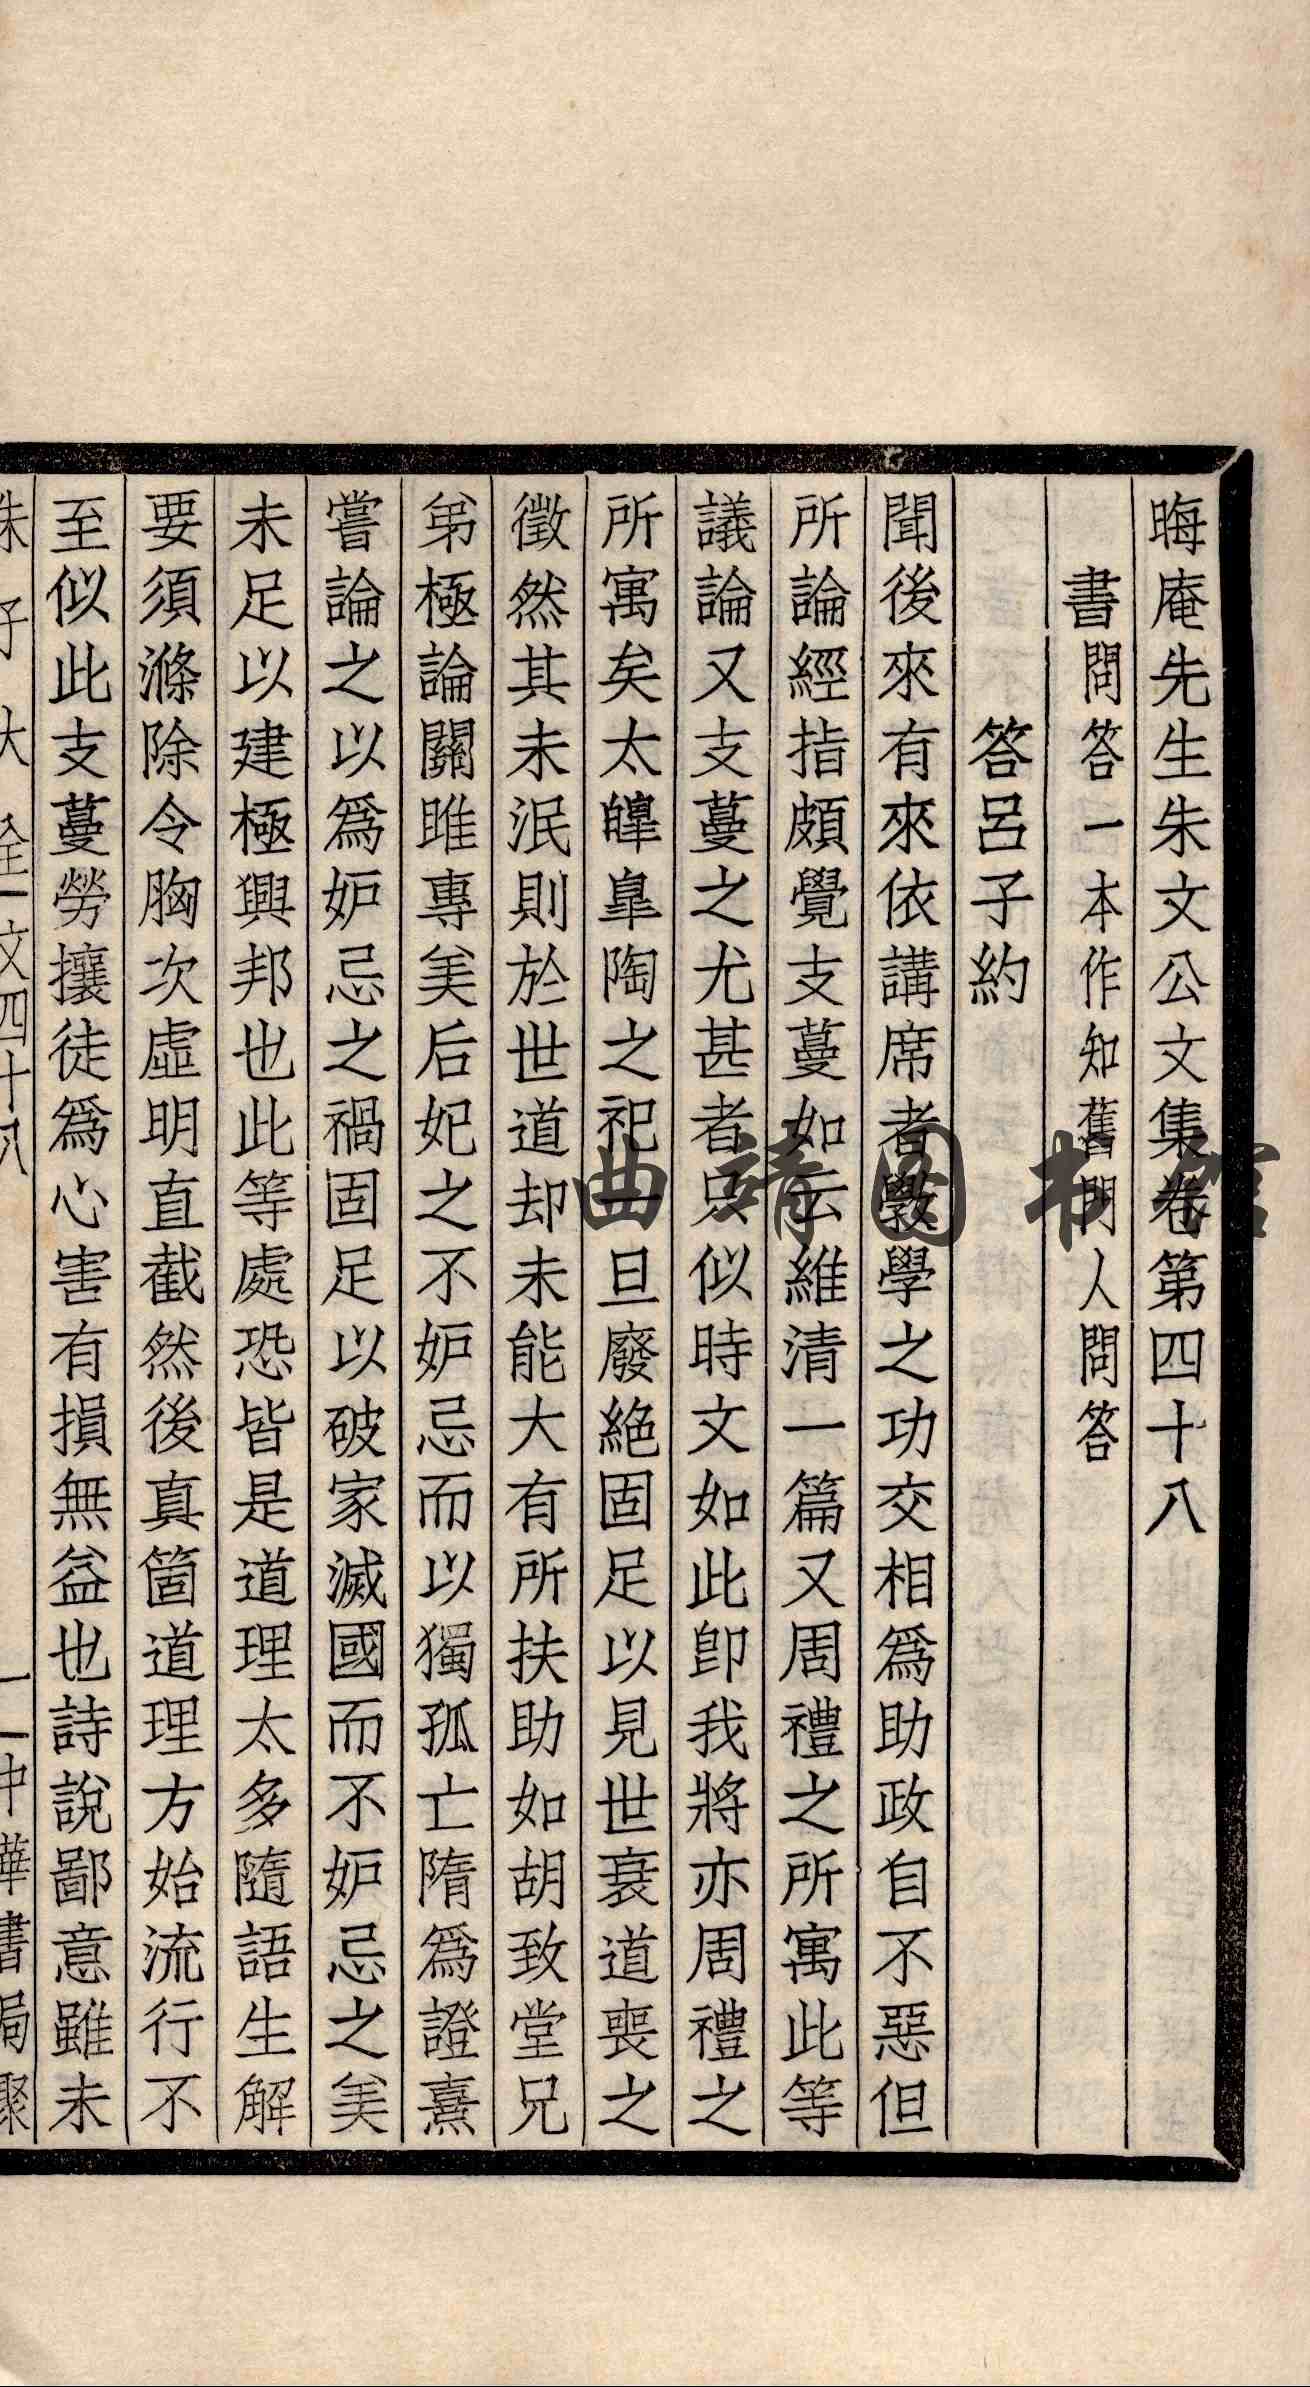 晦庵先生朱文公文集卷第四十八
書問答一本作知舊門人問答
答呂子約
聞後來有來依講席者斅學之功交相爲助政自不惡但
所論經指頗覺支蔓如云維清一篇又周禮之所寓此等
議論又支蔓之尤甚者只似時文如此卽我將亦周禮之
所寓矣太皡皐陶之祀一旦廢絕固足以見世衰道喪之
徵然其未泯則於世道却未能大有所扶助如胡致堂兄
弟極論關雎專美后妃之不妒忌而以獨孤亡隋爲證熹
嘗論之以爲妒忌之禍固足以破家滅國而不妒忌之美
未足以建極興邦也此等處恐皆是道理太多隨語生解
要須滌除令胸次虛明直截然後真箇道理方始流行不
至似此支蔓勞攘徒爲心害有損無益也詩說鄙意雖未
朱子大全 文四十八
一 中華書局聚
曲靖图书馆